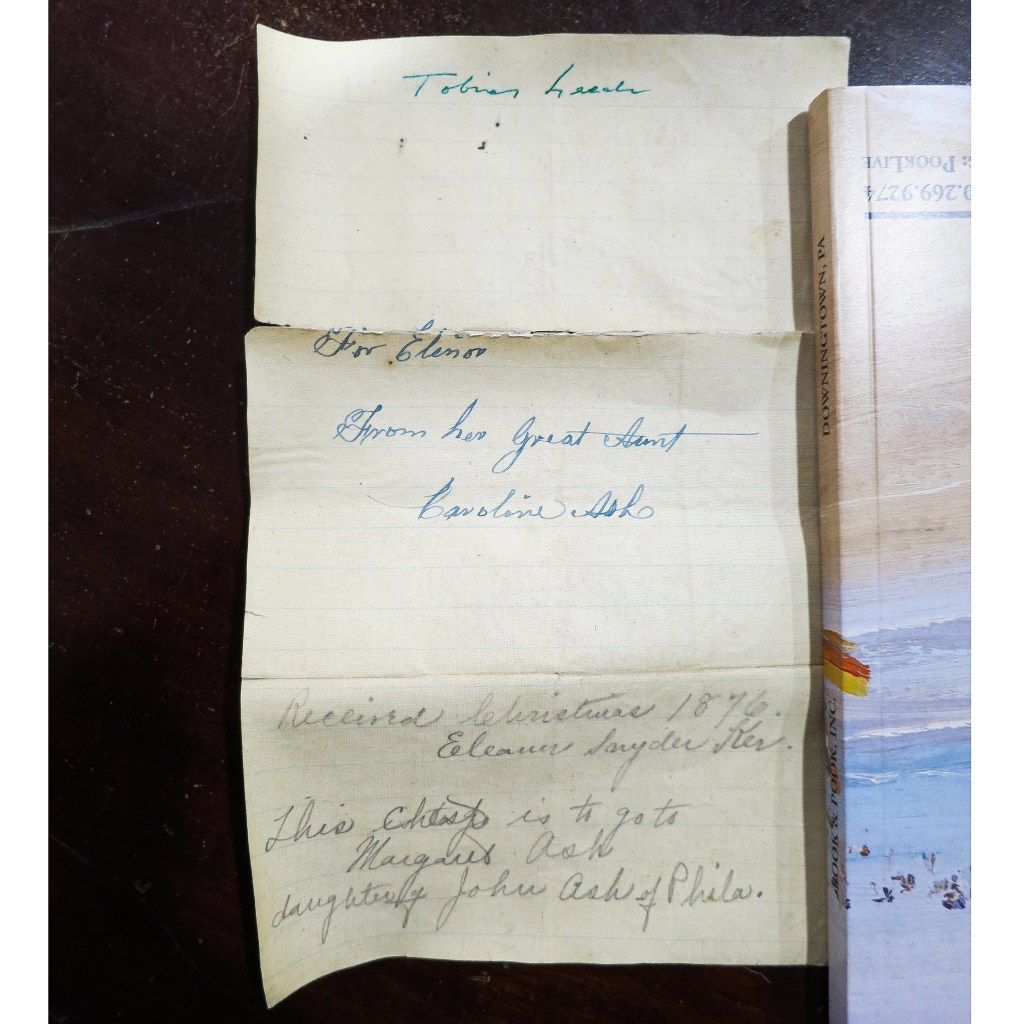 Tobias Leech
For Elinor
From her Great Aunt
Caroline Ash
Received Christmas 1876.
Eleanor Snyder Ker.
This Chest is to go to
Margaret Ash
daughter of John Ash of Phila.
: POOKLIVE
0.269.9274
DOWNINGTOWN, PA
POOK & POOK, INC.